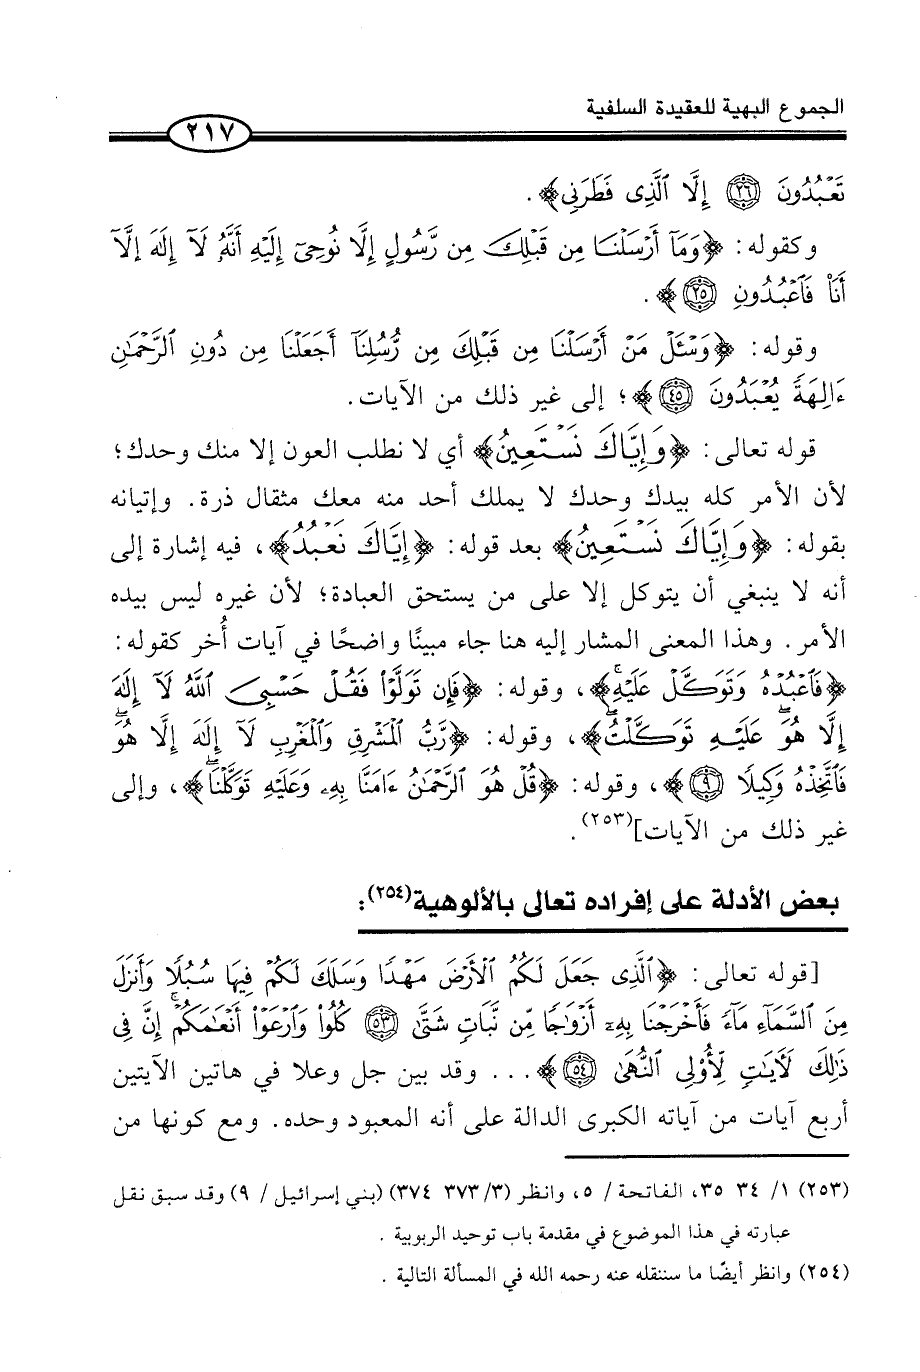 الجموع البهية للعقيدة السلفية
٢١٧
تَعْبُدُونَ ٢٦ إِلَّا ٱلَّذِى فَطَرَنِى﴾.
وكقوله: ﴿وَمَآ أَرْسَلْنَا مِن قَبْلِكَ مِن رَّسُولٍ إِلَّا نُوحِىٓ إِلَيْهِ أَنَّهُۥ لَآ إِلَٰهَ إِلَّآ
أَنَا۠ فَٱعْبُدُونِ ٢٥﴾.
وقوله: ﴿وَسْـَٔلْ مَنْ أَرْسَلْنَا مِن قَبْلِكَ مِن رُّسُلِنَآ أَجَعَلْنَا مِن دُونِ ٱلرَّحْمَٰنِ
ءَالِهَةً يُعْبَدُونَ ٤٥﴾؛ إلى غير ذلك من الآيات.
قوله تعالى: ﴿وَإِيَّاكَ نَسْتَعِينُ﴾ أي لا نطلب العون إلا منك وحدك؛
لأن الأمر كله بيدك وحدك لا يملك أحد منه معك مثقال ذرة. وإتيانه
بقوله: ﴿وَإِيَّاكَ نَسْتَعِينُ﴾ بعد قوله: ﴿إِيَّاكَ نَعْبُدُ﴾، فيه إشارة إلى
أنه لا ينبغي أن يتوكل إلا على من يستحق العبادة؛ لأن غيره ليس بيده
الأمر. وهذا المعنى المشار إليه هنا جاء مبينًا واضحًا في آيات أُخر كقوله:
﴿فَٱعْبُدْهُ وَتَوَكَّلْ عَلَيْهِ ۚ﴾، وقوله: ﴿فَإِن تَوَلَّوْا۟ فَقُلْ حَسْبِىَ ٱللَّهُ لَآ إِلَٰهَ
إِلَّا هُوَ ۖ عَلَيْهِ تَوَكَّلْتُ ۖ﴾، وقوله: ﴿رَّبُّ ٱلْمَشْرِقِ وَٱلْمَغْرِبِ لَآ إِلَٰهَ إِلَّا هُوَ ۖ
فَٱتَّخِذْهُ وَكِيلًا ٩﴾، وقوله: ﴿قُلْ هُوَ ٱلرَّحْمَٰنُ ءَامَنَّا بِهِۦ وَعَلَيْهِ تَوَكَّلْنَا ۖ﴾، وإلى
غير ذلك من الآيات](٢٥٣).
بعض الأدلة على إفراده تعالى بالألوهية(٢٥٤):
[قوله تعالى: ﴿ٱلَّذِى جَعَلَ لَكُمُ ٱلْأَرْضَ مَهْدًا وَسَلَكَ لَكُمْ فِيهَا سُبُلًا وَأَنزَلَ
مِنَ ٱلسَّمَآءِ مَآءً فَأَخْرَجْنَا بِهِۦٓ أَزْوَٰجًا مِّن نَّبَاتٍ شَتَّىٰ ٥٣ كُلُوا۟ وَٱرْعَوْا۟ أَنْعَٰمَكُمْ ۗ إِنَّ فِى
ذَٰلِكَ لَـَٔايَٰتٍ لِّأُو۟لِى ٱلنُّهَىٰ ٥٤﴾... وقد بين جل وعلا في هاتين الآيتين
أربع آيات من آياته الكبرى الدالة على أنه المعبود وحده. ومع كونها من
(٢٥٣) ١/ ٣٤ ٣٥، الفاتحة/ ٥، وانظر (٣/ ٣٧٣ ٣٧٤) (بني إسرائيل/ ٩) وقد سبق نقل
عبارته في هذا الموضوع في مقدمة باب توحيد الربوبية.
(٢٥٤) وانظر أيضًا ما سننقله عنه رحمه الله في المسألة التالية.